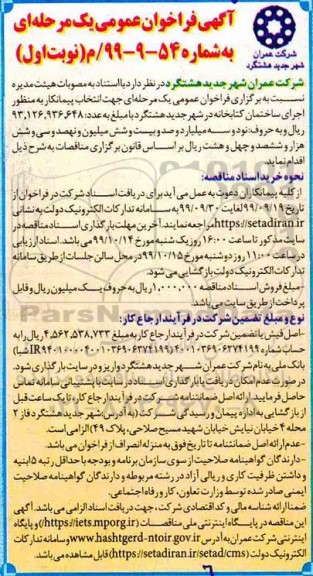 شرکت عمران
شهر جدید هشتگرد
آگهی فراخوان عمومی یک مرحله‌ای
به شماره ۵۴-۹-۹۹/م (نوبت اول)
شرکت عمران شهر جدید هشتگرد در نظر دارد با استناد به مصوبات هیئت مدیره
نسبت به برگزاری فراخوان عمومی یک مرحله‌ای جهت انتخاب پیمانکار به منظور
اجرای ساختمان کتابخانه در شهر جدید هشتگرد با مبلغ به عدد: ۹۳,۱۲۶,۹۳۶,۶۴۸
ریال و به حروف: نود و سه میلیارد و صد و بیست و شش میلیون و نهصد و سی و شش
هزار و ششصد و چهل و هشت ریال بر اساس قانون برگزاری مناقصات به شرح ذیل
اقدام نماید.
نحوه خرید اسناد مناقصه:
از کلیه پیمانکاران دعوت به عمل می آید برای دریافت اسناد شرکت در فراخوان از
تاریخ ۹۹/۰۹/۱۹ لغایت ۹۹/۰۹/۳۰ به سامانه تدارکات الکترونیک دولت به نشانی
https://setadiran.ir مراجعه نمایند. آخرین مهلت بارگذاری اسناد مناقصه در
سایت مذکور تا ساعت ۱۶:۰۰ روز یک شنبه مورخ ۹۹/۱۰/۱۴ می باشد. اسناد ارزیابی
در ساعت ۱۱:۰۰ روز دوشنبه مورخ ۹۹/۱۰/۱۵ در محل سالن جلسات از طریق سامانه
تدارکات الکترونیک دولت بازگشایی می شود.
مبلغ فروش اسناد مناقصه ۱,۰۰۰,۰۰۰ ریال به حروف یک میلیون ریال و قابل
پرداخت از طریق سایت می باشد.
نوع و مبلغ تضمین شرکت در فرآیند ارجاع کار:
اصل فیش یا تضمین شرکت در فرآیند ارجاع کار به مبلغ ۴,۵۶۲,۵۳۸,۷۳۳ ریال را به
حساب شماره
بانک ملی به نام شرکت عمران شهر جدید هشتگرد واریز و در سایت بارگذاری شود.
در صورت عدم امکان دریافت یا بارگذاری اسناد با پشتیبانی سامانه تماس
حاصل فرمایید. ارائه اصل ضمانتنامه شرکت در فرآیند ارجاع کار تا یک ساعت قبل
از بازگشایی به اداره پیمان و رسیدگی شرکت (به آدرس شهر جدید هشتگرد فاز ۲
محله ۴ خیابان نیایش خیابان شهید مسیح صلاحی، پلاک ۴۹) الزامی است.
-عدم ارائه اصل ضمانتنامه تا تاریخ فوق به منزله انصراف از فراخوان می باشد.
-دارندگان گواهینامه صلاحیت از سوی سازمان برنامه و بودجه با حداقل رتبه ۵ ابنیه
و داشتن ظرفیت کاری و ریالی آزاد در رشته مربوطه و دارندگان گواهینامه صلاحیت
ایمنی صادر شده توسط وزارت تعاون، کار و رفاه اجتماعی.
ضمنا ارائه شناسه ملی و کد اقتصادی شرکت، جهت دریافت اسناد الزامی می باشد. آگهی
این مناقصه در پایگاه اینترنتی ملی مناقصات (https://iets.mporg.ir) و پایگاه
اینترنتی شرکت عمران به آدرس www.hashtgerd-ntoir.gov.ir و سامانه تدارکات
الکترونیک دولت (https://setadiran.ir/setad/cms) قابل مشاهده می باشد.